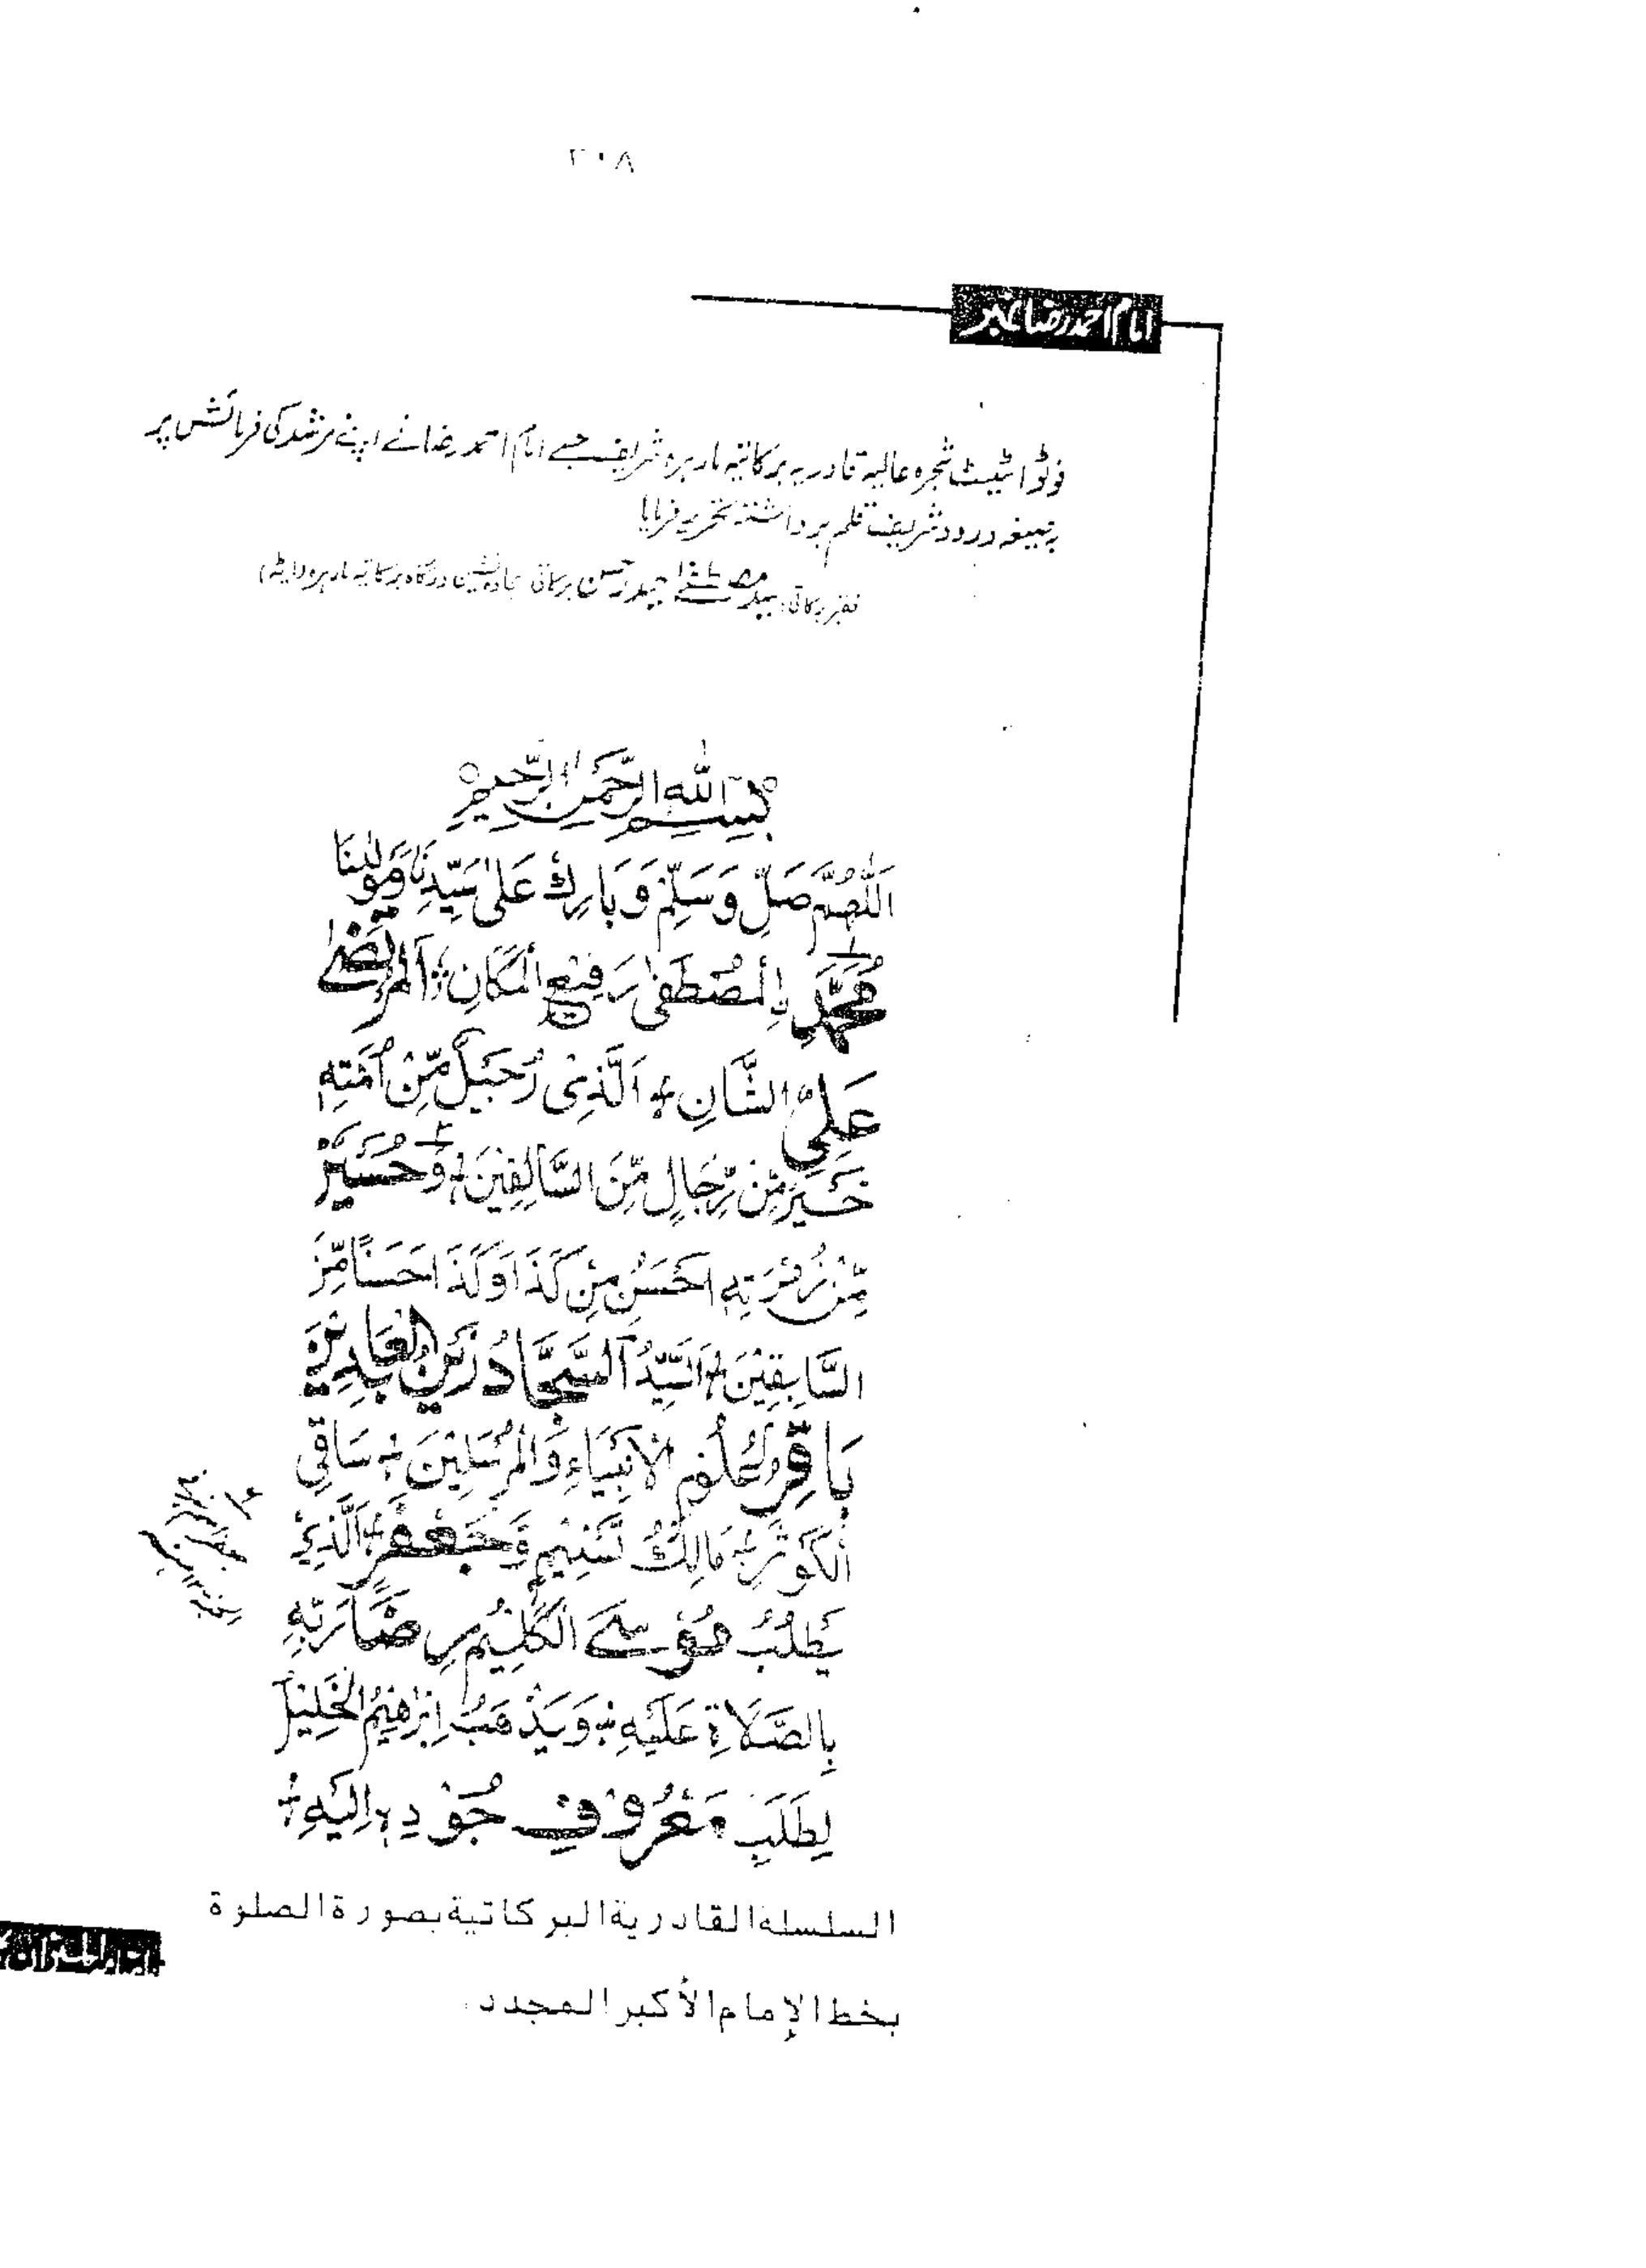 ٢٠٨
امام احمد رضا نمبر
فوٹو اسٹیٹ شجرہ عالیہ قادریہ برکاتیہ مارہرہ شریف جسے امام احمد رضا نے اپنے مرشد کی فرمائش پر
بصیغہ درود شریف قلم برداشتہ تحریر فرمایا
فقیر برکاتی سید مصطفےٰ حیدر حسن برکاتی سجادہ نشین درگاہ برکاتیہ مارہرہ (ایٹہ)
بِسْمِ اللهِ الرَّحْمٰنِ الرَّحِيْمِ
اَللّٰهُمَّ صَلِّ وَسَلِّمْ وَبَارِكْ عَلٰى سَيِّدِنَا وَمَوْلٰينَا
مُحَمَّدِ ِالْمُصْطَفٰى رَفِيْعِ الْمَكَانِ ؛ اَلْمُرْتَضٰى
عَلِيِّ الشَّانِ ؛ اَلَّذِىْ رُجَيْلٌ مِّنْ اُمَّتِهٖ
خَيْرٌ مِّنْ رِّجَالٍ مِّنَ السَّالِفِيْنَ ؛ وَحُسَيْنٌ
مِّنْ زُمْرَتِهٖ اَحْسَنُ مِنْ كَذَا وَكَذَا حَسَنًا مِّنَ
السَّابِقِيْنَ ؛ اَلسَّيِّدُ السَّجَّادُ زَيْنُ الْعَابِدِيْنَ
بَاقِرُ عُلُوْمِ الْاَنْبِيَاءِ وَالْمُرْسَلِيْنَ ؛ سَاقِي
الْكَوْثَرِ ؛ مَالِكُ تَسْنِيْمٍ وَّجَعْفَرٍ ؛ اَلَّذِىْ
يَطْلُبُ مُوْسَى الْكَلِيْمُ رِضَا رَبِّهٖ
بِالصَّلَاةِ عَلَيْهِ ؛ وَيَذْهَبُ اِبْرٰهِيْمُ الْخَلِيْلُ
لِطَلَبِ مَعْرُوْفِ جُوْدِهٖ اِلَيْهِ ؛
السلسلة القادرية البركاتية بصورة الصلوة
بخط الإمام الأكبر المجدد